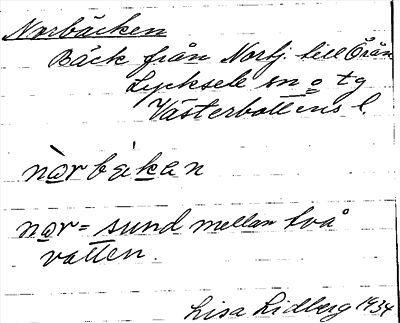 Norbäcken
Bäck från Norbj. till Örån
Lycksele sn o tg
Västerbottens l.
nàrbäkan
nor = sund mellan två
vatten.
Lisa Lidberg 1934